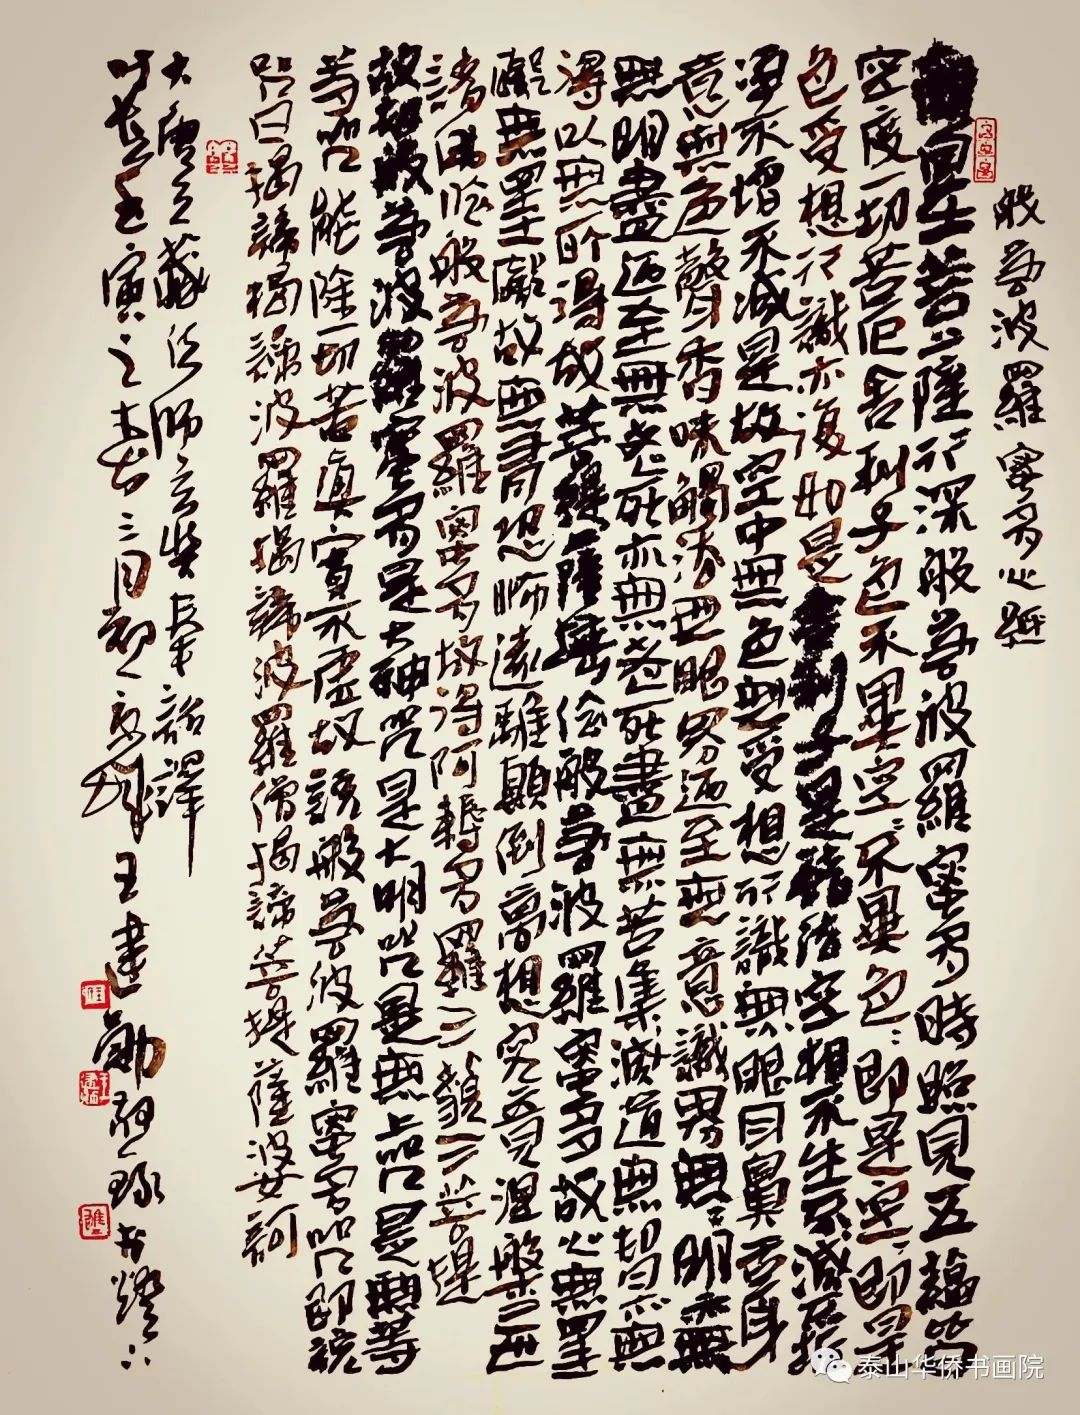 般若波羅蜜多心経
觀自在菩薩行深般若波羅蜜多時照見五蘊皆
空度一切苦厄舍利子色不異空空不異色色即是空空即是
色受想行識亦復如是舍利子是諸法空相不生不滅不垢不
淨不增不减是故空中無色無受想行識無眼耳鼻舌身
意無色聲香味觸法無眼界迺至無意識界無無明亦無
無明盡迺至無老死亦無老死盡無苦集滅道無智亦無
得以無所得故菩提薩埵依般若波羅蜜多故心無罣
礙無罣礙故無有恐怖遠離顛倒夢想究竟涅槃三世
諸佛依般若波羅蜜多故得阿耨多羅三藐三菩提
故知般若波羅蜜多是大神咒是大明咒是無上咒是無等
等咒能除一切苦真實不虛故說般若波羅蜜多咒即說
咒曰揭諦揭諦波羅揭諦波羅僧揭諦菩提薩婆訶
大唐三藏法師玄奘奉詔譯
王寅之春三月初 王建勛
泰山华侨书画院